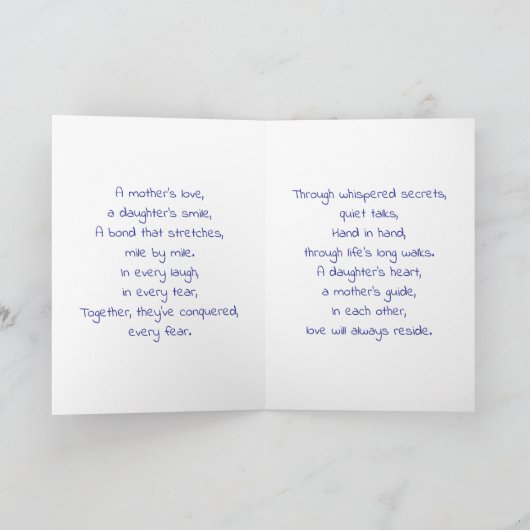 A mother's love,
a daughter's smile,
A bond that stretches,
mile by mile.
In every laugh,
in every tear,
Together, they've conquered,
every fear.
Through whispered secrets,
quiet talks,
Hand in hand,
through life's long walks.
A daughter's heart,
a mother's guide,
In each other,
love will always reside.